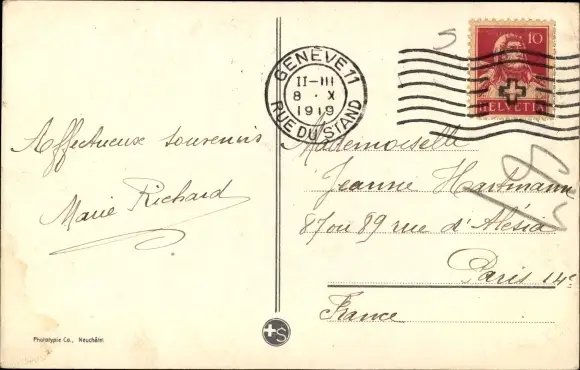 GENÈVE 11
II-III
8 · X
1919
RUE DU STAND
10
HELVETIA
Affectueux souvenirs
Marie Richard
Mademoiselle
Jeanne Hartmann
87 ou 89 rue d'Alésia
Paris 14e
France
Phototypie Co., Neuchâtel
S